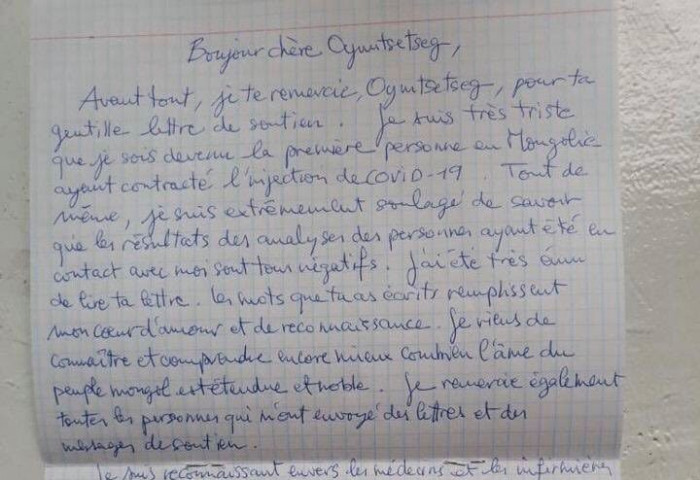 Bonjour chère Oyuntsetseg,
Avant tout, je te remercie, Oyuntsetseg, pour ta
gentille lettre de soutien. Je suis très triste
que je sois devenu la première personne en Mongolie
ayant contracté l'injection de COVID-19. Tout de
même, je suis extrêmement soulagé de savoir
que les résultats des analyses des personnes ayant été en
contact avec moi sont tous négatifs. J'ai été très ému
de lire ta lettre. Les mots que tu as écrits remplissent
mon cœur d'amour et de reconnaissance. Je viens de
connaître et comprendre encore mieux combien l'âme du
peuple mongol est étendue et noble. Je remercie également
toutes les personnes qui m'ont envoyé des lettres et des
messages de soutien.
Je suis reconnaissant envers les médecins et les infirmières